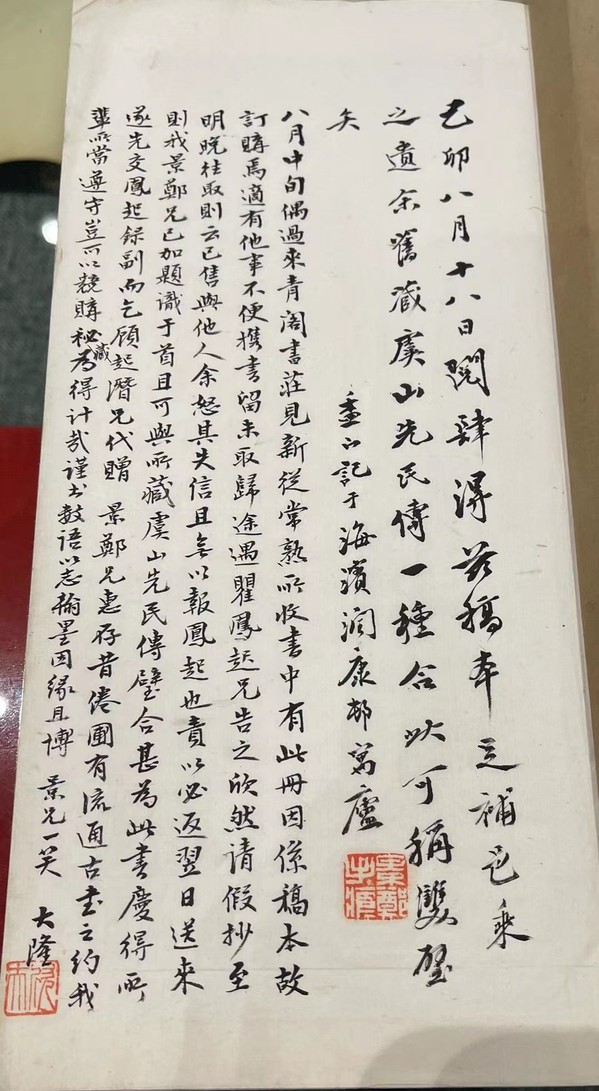 己卯八月十八日閱肆得茲稿本足補邑乘
之遺余舊藏虞山先民傳一種合此可稱雙璧
矣
垂㞢記于海濱潤康邨寓廬
八月中旬偶過來青閣書莊見新從常熟所收書中有此冊因係稿本故
訂購焉適有他事不便携書留未取歸途遇瞿鳳起兄告之欣然請假抄至
明晚往取則云已售與他人余怒其失信且無以報鳳起也責以必返翌日送來
則我景鄭兄已加題識于首且可與所藏虞山先民傳璧合甚為此書慶得所
遂先交鳳起錄副而乞顧起潛兄代贈 景鄭兄惠存昔倦圃有流通古書之約我
輩所當遵守豈可以競購秘藏為得計哉謹書數語以志翰墨因緣且博 景兄一笑 大隆